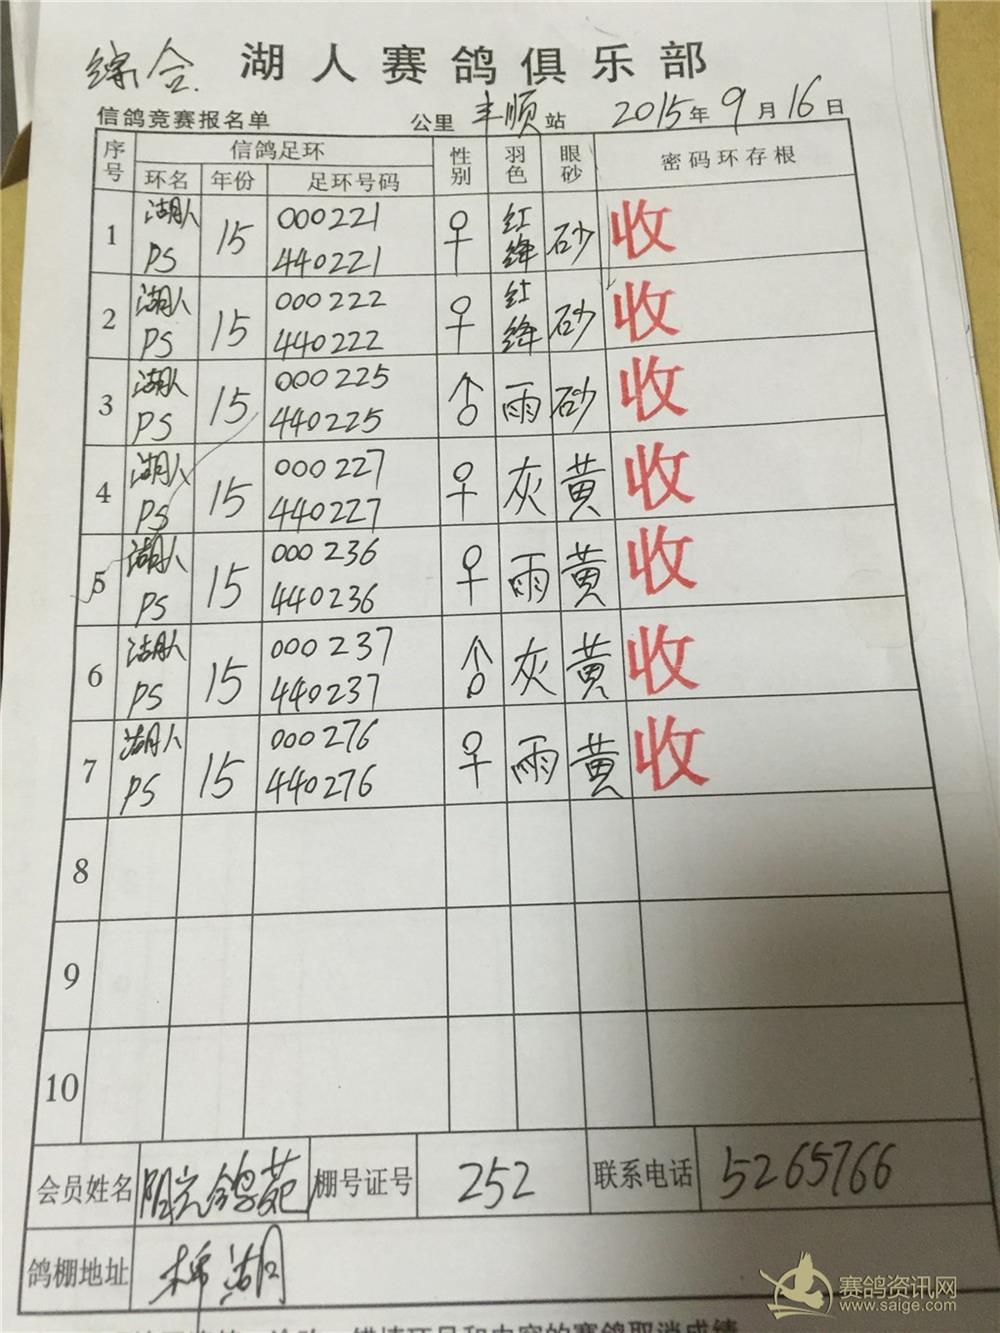 综合 湖人赛鸽俱乐部
信鸽竞赛报名单 公里 丰顺 站 2015年9月16日
序号 信鸽足环 性别 羽色 眼砂 密码环存根
环名 年份 足环号码
1 湖人 15 000221 ♀ 红绛 砂 收
PS 440221
2 湖人 15 000222 ♀ 红绛 砂 收
PS 440222
3 湖人 15 000225 ♂ 雨 砂 收
PS 440225
4 湖人 15 000227 ♀ 灰 黄 收
PS 440227
5 湖人 15 000236 ♀ 雨 黄 收
PS 440236
6 湖人 15 000237 ♂ 灰 黄 收
PS 440237
7 湖人 15 000276 ♀ 雨 黄 收
PS 440276
8
9
10
会员姓名 阳光鸽苑 棚号证号 252 联系电话 5265766
鸽棚地址 棉湖
赛鸽资讯网
www.saige.com